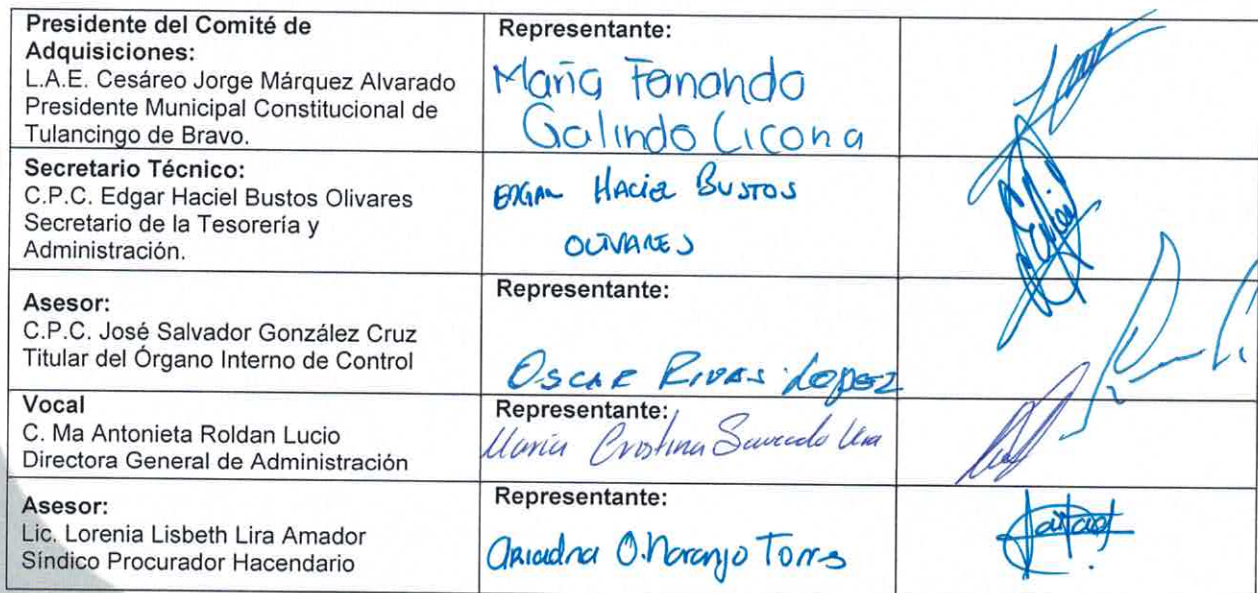 Presidente del Comité de
Adquisiciones:
L.A.E. Cesáreo Jorge Márquez Alvarado
Presidente Municipal Constitucional de
Tulancingo de Bravo.
Representante:
María Fernanda
Galindo Licona
Secretario Técnico:
C.P.C. Edgar Haciel Bustos Olivares
Secretario de la Tesorería y
Administración.
EDGAR HACIEL BUSTOS
OLIVARES
Asesor:
C.P.C. José Salvador González Cruz
Titular del Órgano Interno de Control
Representante:
OSCAR RIVAS LOPEZ
Vocal
C. Ma Antonieta Roldan Lucio
Directora General de Administración
Representante:
María Cristina
Asesor:
Lic. Lorenia Lisbeth Lira Amador
Síndico Procurador Hacendario
Representante:
Ariadna O. Naranjo Torres